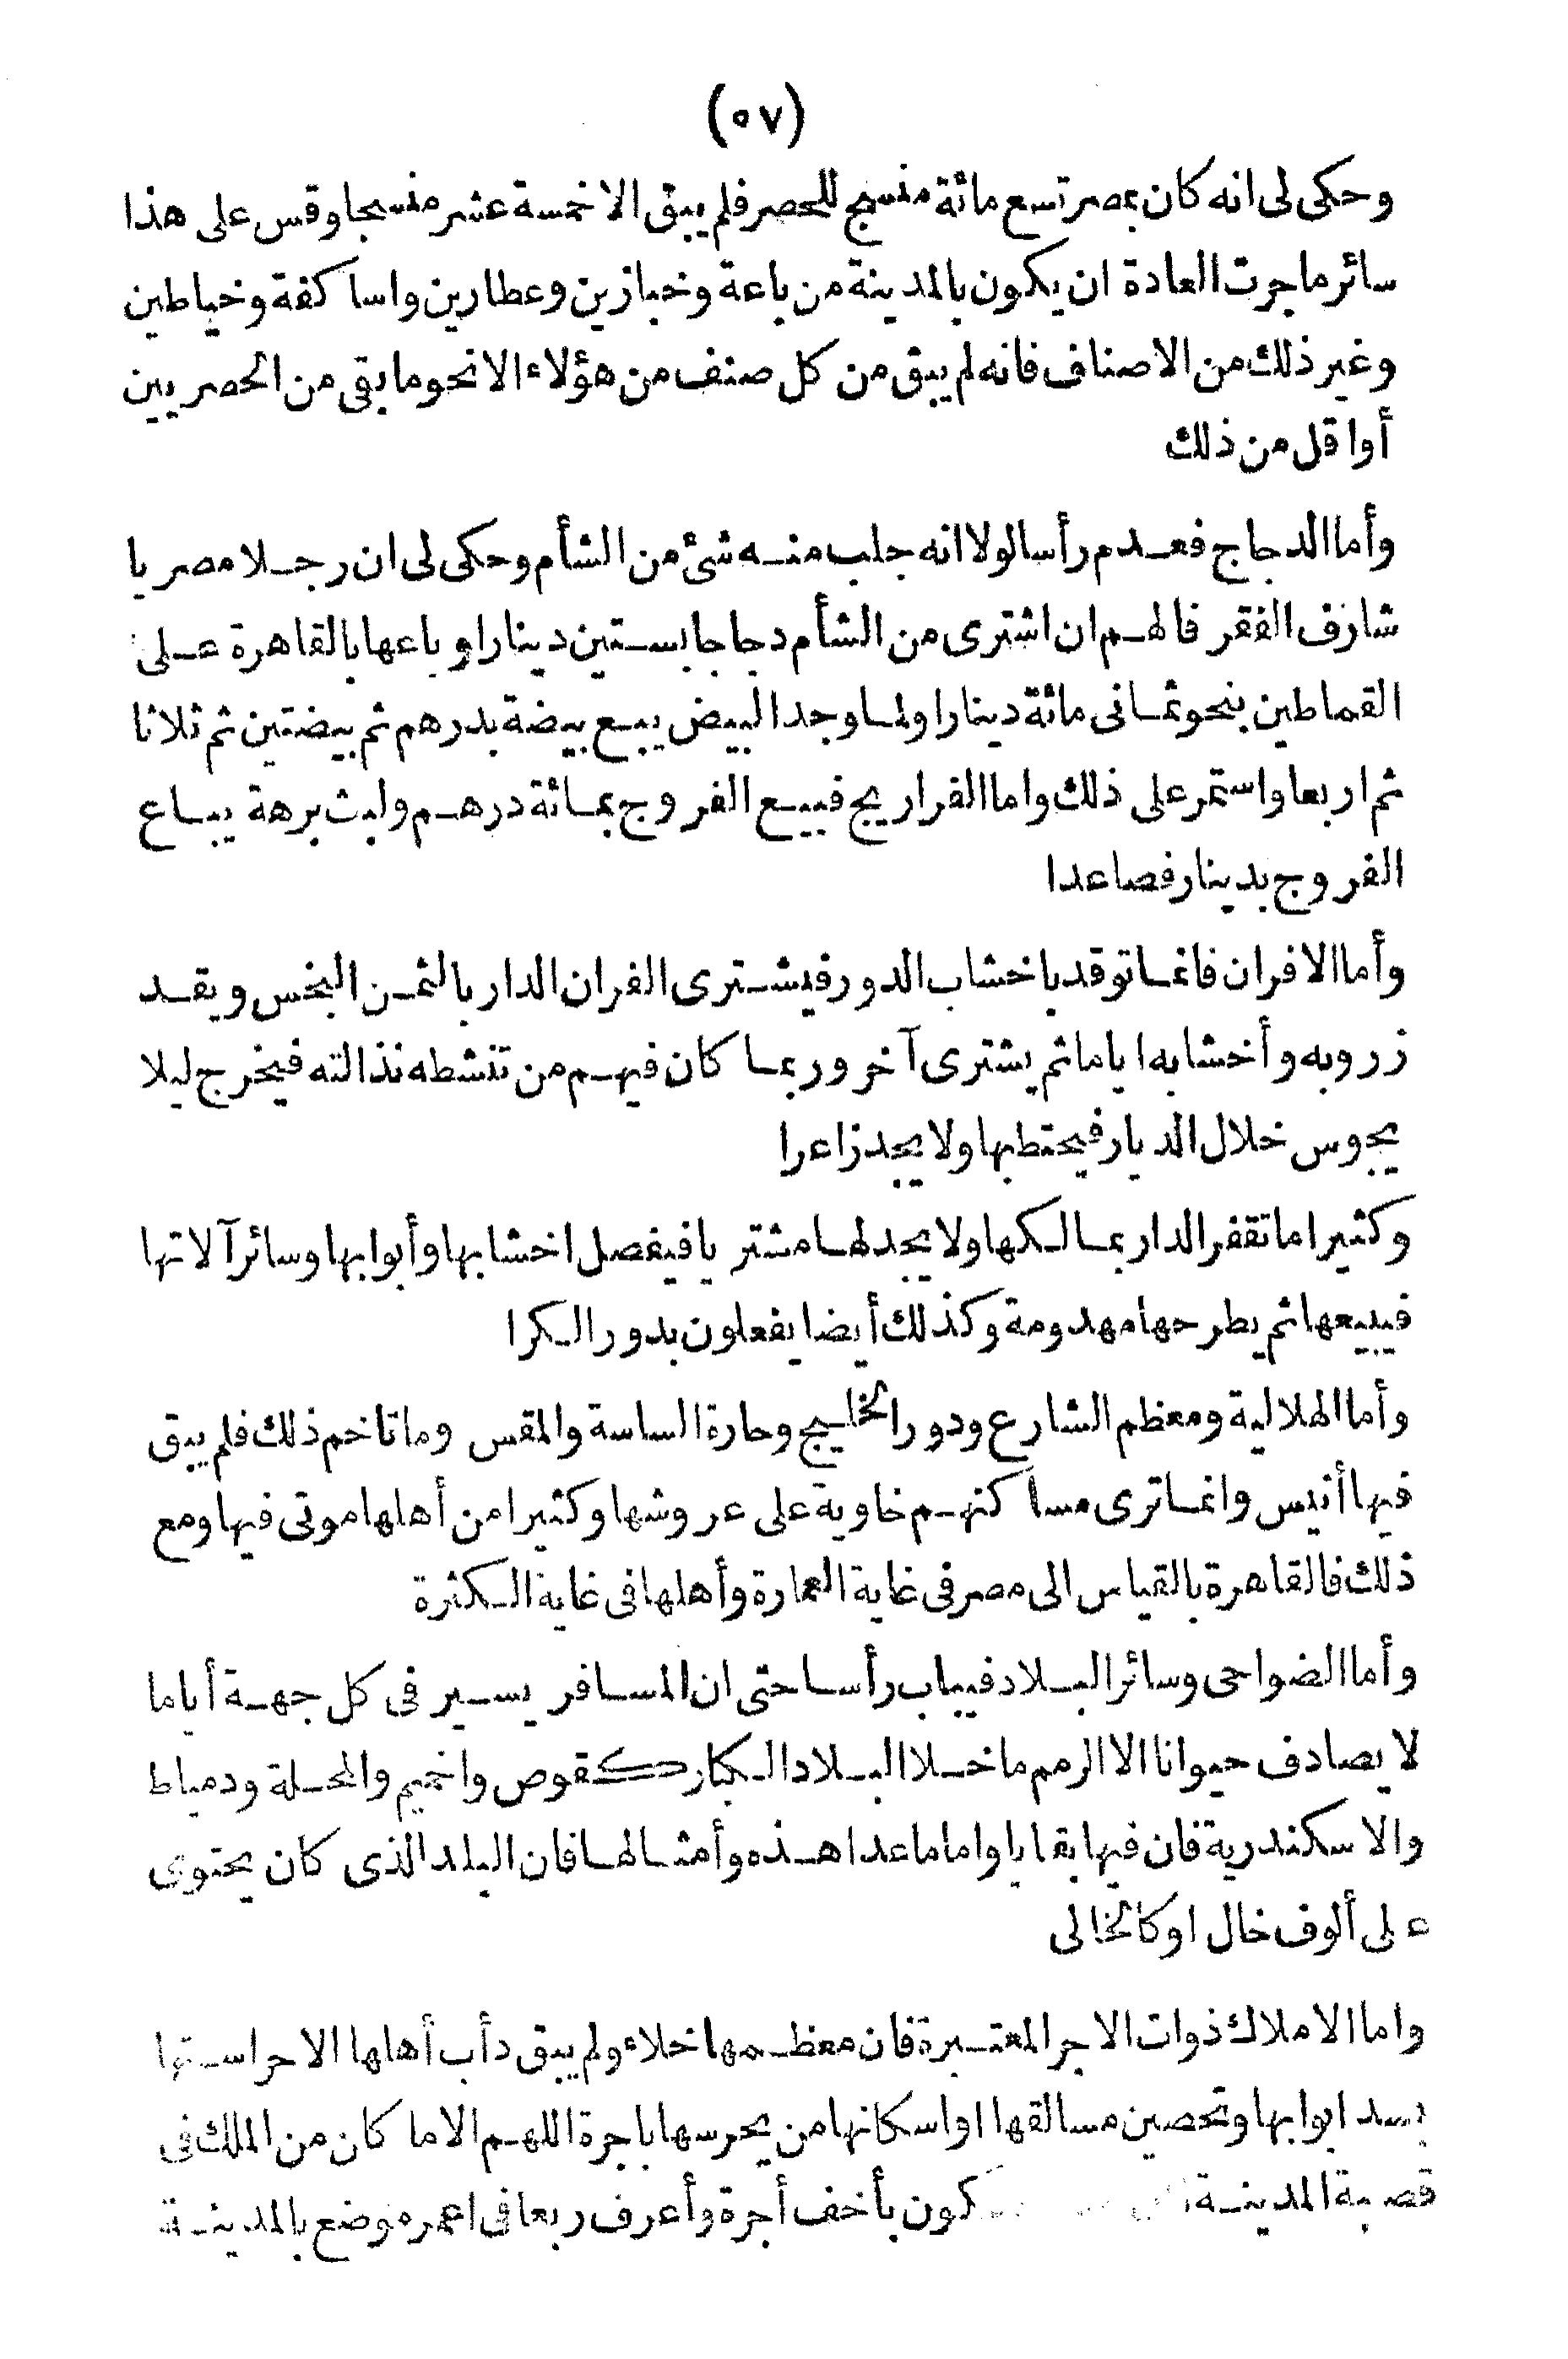 (٥٧)
وحكى لى انه كان بمصر تسع مائة منسج للحصر فلم يبق الا خمسة عشر منسجا وقس على هذا
سائر ما جرت العادة ان يكون بالمدينة من باعة وخبازين وعطارين واساكفة وخياطين
وغير ذلك من الاصناف فانه لم يبق من كل صنف من هؤلاء الا نحو ما بقى من الحصريين
أوا قل من ذلك
وأما الدجاج فعدم رأسا لولا انه جلب منه شئ من الشأم وحكى لى ان رجلا مصريا
شارف الفقر فالهم ان اشترى من الشأم دجاجا بستين دينارا وباعها بالقاهرة على
القماطين بنحو ثمانى مائة دينارا ولما وجد البيض بيع بيضة بدرهم ثم بيضتين ثم ثلاثا
ثم اربعا واستمر على ذلك واما الفراريج فبيع الفروج بمائة درهم ولبث برهة يباع
الفروج بدينار فصاعدا
وأما الافران فانما توقد باخشاب الدور فيشترى الفران الدار بالثمن البخس ويقد
زروبه وأخشابه اياما ثم يشترى آخر وربما كان فيهم من تنشطه نذالته فيخرج ليلا
يجوس خلال الديار فيحتطبها ولا يجد زاعرا
وكثيرا ما تقفر الدار بمالكها ولا يجد لها مشتريا فيفصل اخشابها وأبوابها وسائر آلاتها
فيبيعها ثم يطرحها مهدومة وكذلك أيضا يفعلون بدور الكرا
وأما الهلالية ومعظم الشارع ودور الخليج وحارة الساسة والمقس وما تاخم ذلك فلم يبق
فيها أنيس وانما ترى مساكنهم خاوية على عروشها وكثيرا من أهلها موتى فيها ومع
ذلك فالقاهرة بالقياس الى مصر فى غاية العمارة وأهلها فى غاية الكثرة
وأما الضواحى وسائر البلاد فيباب رأسا حتى ان المسافر يسير فى كل جهة أياما
لا يصادف حيوانا الا الرمم ما خلا البلاد الكبار كقوص واخميم والمحلة ودمياط
والاسكندرية فان فيها بقايا واما ما عدا هذه وأمثالها فان البلد الذى كان يحتوى
على ألوف خال او كالخالى
واما الاملاك ذوات الاجر المعتبرة فان معظمها خلاء ولم يبق دأب أهلها الا حراستها
بسد ابوابها وتحصين مسالقها او اسكانها من يحرسها باجرة اللهم الا ما كان من الملك فى
قصبة المدينة كون بأخف أجرة وأعرف ربعا فى اعمر موضع بالمدينة